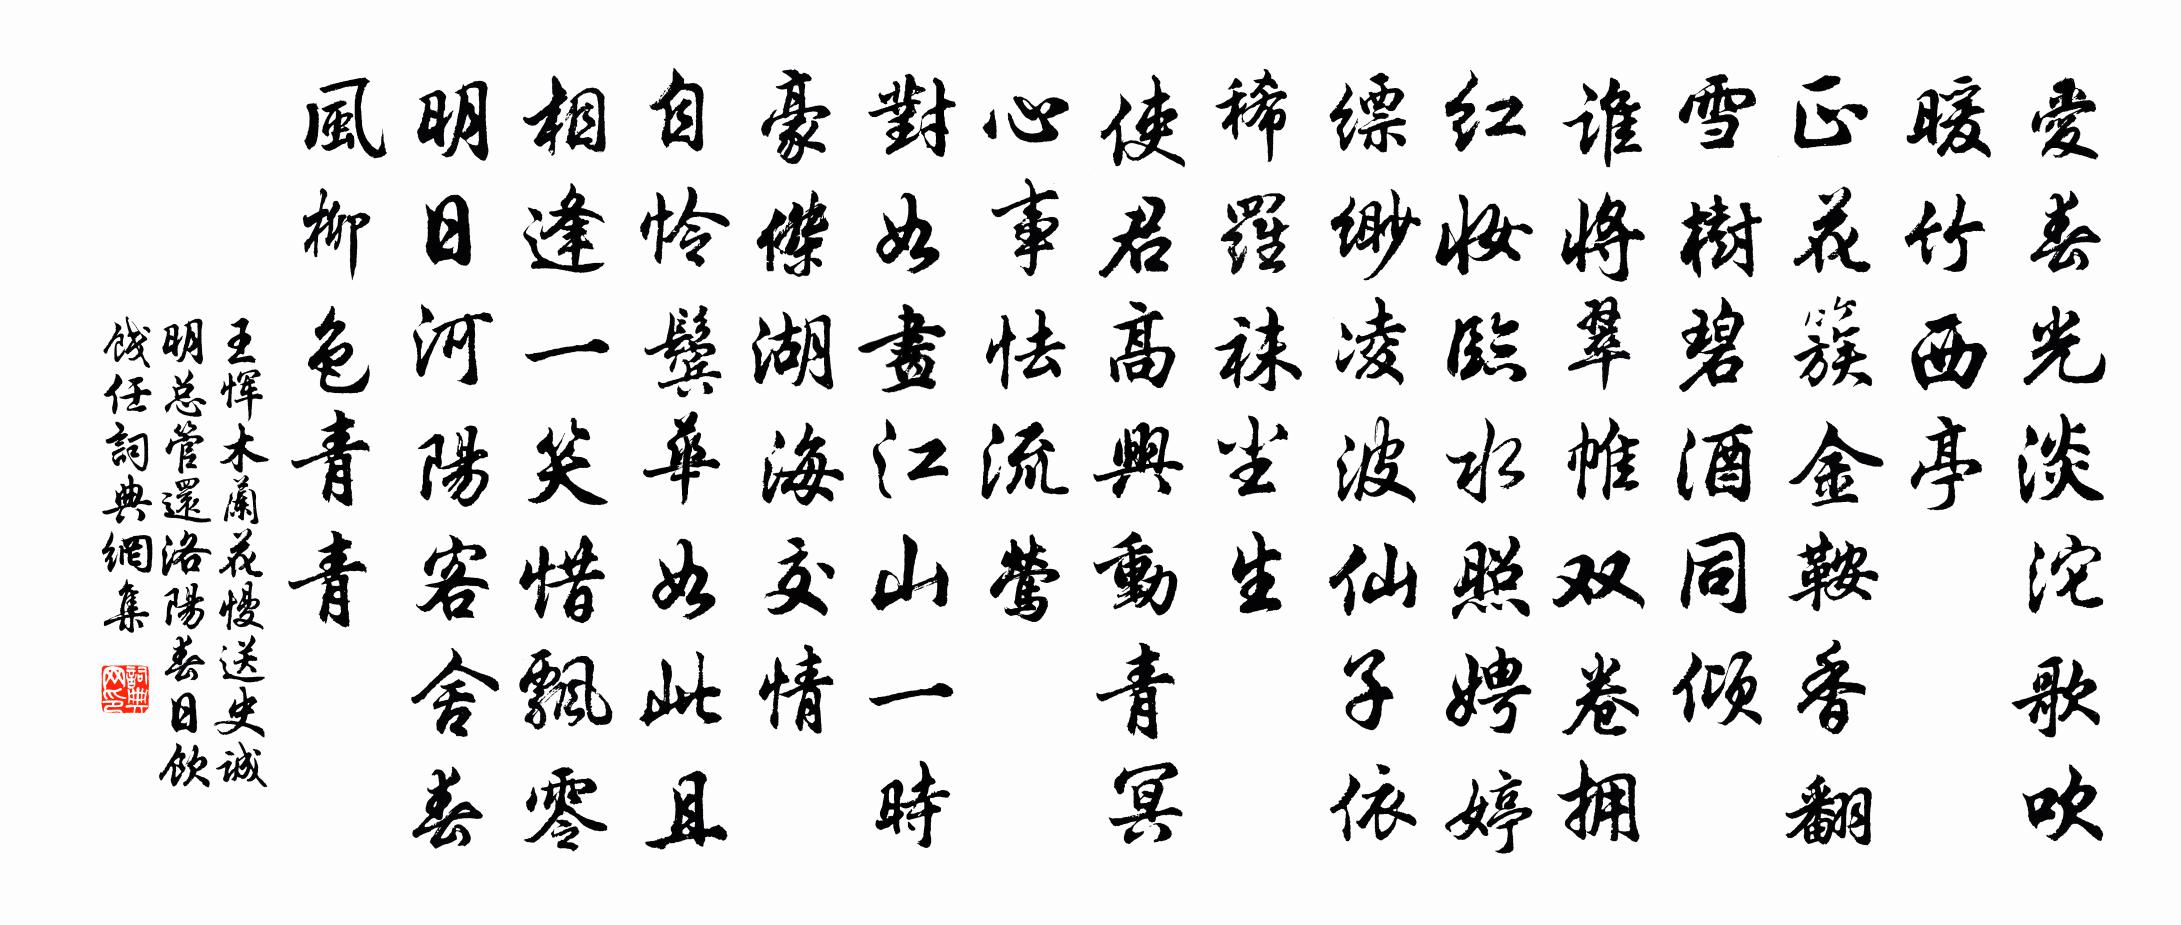 愛春光淡沱歌吹
暖竹西亭
正花簇金鞍香翻
雪樹碧酒同倾
谁将翠帷双卷拥
红妝臨水照娉婷
缥缈凌波仙子依
稀羅袜尘生
使君高興動青冥
心事怯流鶯
對如畫江山一時
豪傑湖海交情
自怜鬢華如此且
相逢一笑惜飄零
明日河陽客舍春
風柳色青青
王恽木蘭花慢送史诚
明总管還洛陽春日飲
餞任詞典網集